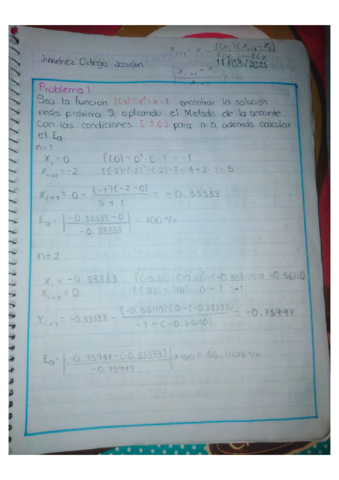 Jiménez Ortega Joselin
11/03/2021
Problema 1
Sea la función f(x)=x²-x-1 encontrar la solución
más próxima a aplicando el Metodo de la secante
con las condiciones [-2,0] para n=5, además calcular
el Ea
n=1
Xi=0 f(0)=0²-0-1=-1
Xi-1=-2 f(-2)=(-2)²-(-2)-1=4+2-1=5
Xi+1=0-(-1)(-2-0)/5+1=-0.33333
Ea=|-0.33333-0/-0.33333|=100%
n=2
Xi=-0.33333
Xi-1=0 f(0)=(0)²-0-1=-1
Xi+1=-0.33333-(-0.56110)(0-(-0.33333))/-1-(-0.56110)=-0.75947
Ea=|-0.75947-(-0.33333)/-0.75947|×100=56.1108%